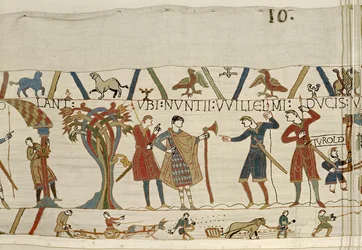 10.
LANT: VBI: NVNTII: VVILLELMI: DVCIS
TVROLD